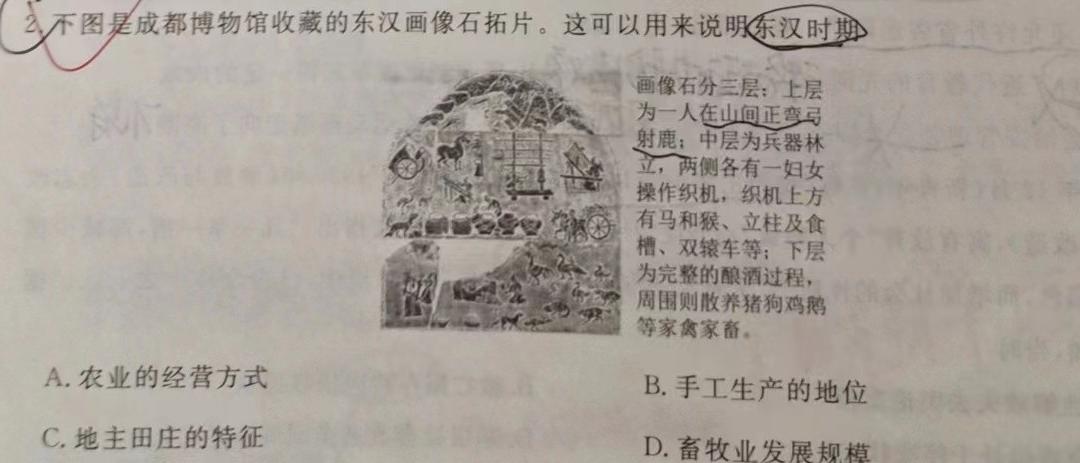 2.下图是成都博物馆收藏的东汉画像石拓片。这可以用来说明东汉时期
画像石分三层；上层
为一人在山间正弯弓
射鹿；中层为兵器林
立，两侧各有一妇女
操作织机，织机上方
有马和猴、立柱及食
槽、双辕车等；下层
为完整的酿酒过程，
周围则散养猪狗鸡鹅
等家禽家畜。
A. 农业的经营方式
B. 手工生产的地位
C. 地主田庄的特征
D. 畜牧业发展规模